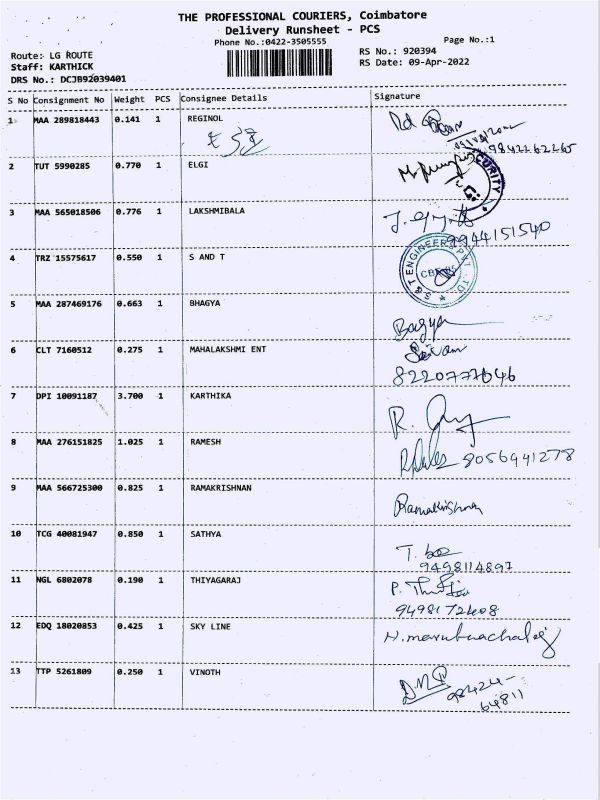 THE PROFESSIONAL COURIERS, Coimbatore
Delivery Runsheet - PCS
Phone No.:0422-3505555
Page No.:1
Route: LG ROUTE
RS No.: 920394
Staff: KARTHICK
RS Date: 09-Apr-2022
DRS No.: DCJB92039401
S No Consignment No Weight PCS Consignee Details Signature
1 MAA 289818443 0.141 1 REGINOL
9842262265
2 TUT 5990285 0.770 1 ELGI
3 MAA 565018506 0.776 1 LAKSHMIBALA
9944151540
4 TRZ 15575617 0.550 1 S AND T
S & T ENGINEERS PVT. LTD.
5 MAA 287469176 0.663 1 BHAGYA
Bagya
6 CLT 7160512 0.275 1 MAHALAKSHMI ENT
8220777646
7 DPI 10091187 3.700 1 KARTHIKA
8 MAA 276151825 1.025 1 RAMESH
8056441278
9 MAA 566725300 0.825 1 RAMAKRISHNAN
Ramakrishna
10 TCG 40081947 0.850 1 SATHYA
9498114897
11 NGL 6802078 0.190 1 THIYAGARAJ
9498172408
12 EDQ 18020853 0.425 1 SKY LINE
13 TTP 5261809 0.250 1 VINOTH